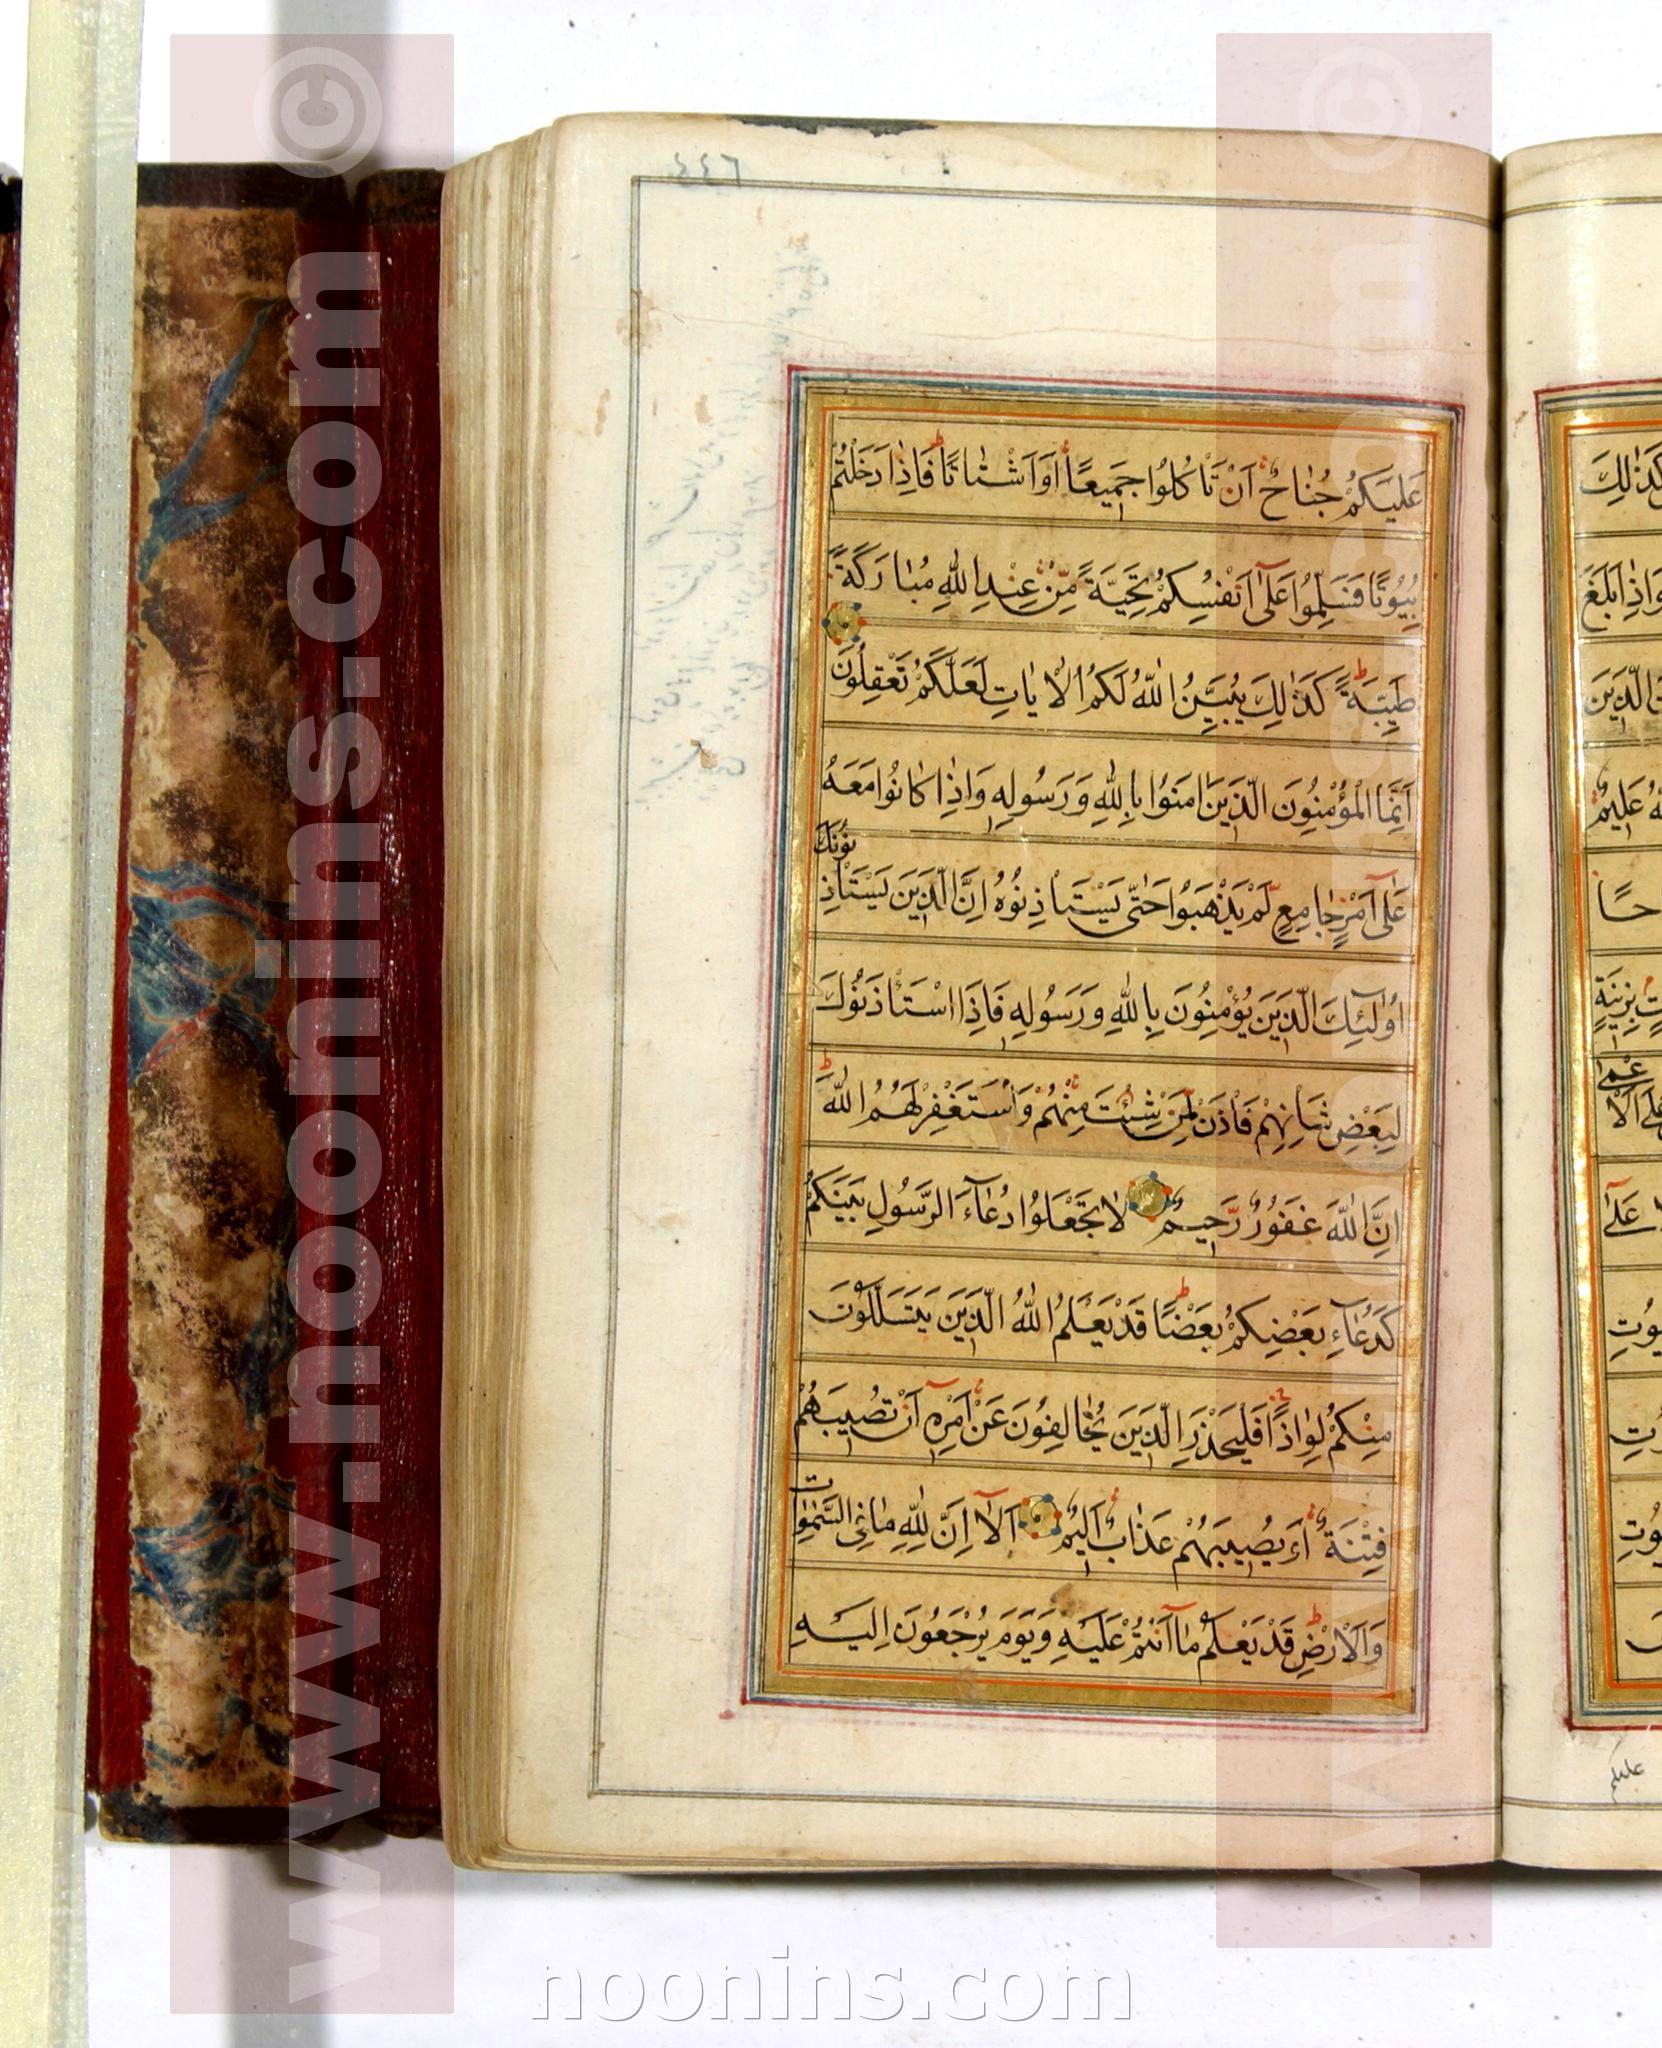 ٤٤٦
عَلَيْكُمْ جُنَاحٌ اَنْ تَاْكُلُوا جَمِيعًا اَوْ اَشْتَاتًا فَاِذَا دَخَلْتُمْ
بُيُوتًا فَسَلِّمُوا عَلٰٓى اَنْفُسِكُمْ تَحِيَّةً مِنْ عِنْدِ اللهِ مُبَارَكَةً
طَيِّبَةً كَذٰلِكَ يُبَيِّنُ اللهُ لَكُمُ الْاٰيَاتِ لَعَلَّكُمْ تَعْقِلُونَ
اِنَّمَا الْمُؤْمِنُونَ الَّذِينَ اٰمَنُوا بِاللهِ وَرَسُولِهِ وَاِذَا كَانُوا مَعَهُ
عَلٰٓى اَمْرٍ جَامِعٍ لَمْ يَذْهَبُوا حَتّٰى يَسْتَاْذِنُوهُ اِنَّ الَّذِينَ يَسْتَاْذِنُونَكَ
اُولٰٓئِكَ الَّذِينَ يُؤْمِنُونَ بِاللهِ وَرَسُولِهِ فَاِذَا اسْتَأْذَنُوكَ
لِبَعْضِ شَاْنِهِمْ فَاْذَنْ لِمَنْ شِئْتَ مِنْهُمْ وَاسْتَغْفِرْ لَهُمُ اللهَ
اِنَّ اللهَ غَفُورٌ رَحِيمٌ لَا تَجْعَلُوا دُعَآءَ الرَّسُولِ بَيْنَكُمْ
كَدُعَآءِ بَعْضِكُمْ بَعْضًا قَدْ يَعْلَمُ اللهُ الَّذِينَ يَتَسَلَّلُونَ
مِنْكُمْ لِوَاذًا فَلْيَحْذَرِ الَّذِينَ يُخَالِفُونَ عَنْ اَمْرِهِ اَنْ تُصِيبَهُمْ
فِتْنَةٌ اَوْ يُصِيبَهُمْ عَذَابٌ اَلِيمٌ اَلَآ اِنَّ لِلّٰهِ مَا فِي السَّمٰوَاتِ
وَالْاَرْضِ قَدْ يَعْلَمُ مَآ اَنْتُمْ عَلَيْهِ وَيَوْمَ يُرْجَعُونَ اِلَيْهِ
كَذٰلِكَ
وَاِذَا بَلَغَ
الَّذِينَ
عَلِيمٌ
بِزِينَةٍ
عَلَى الْاَعْمٰى
عَلٰٓى
عليكم
© www.noonins.com
© www.noonins.com
noonins.com